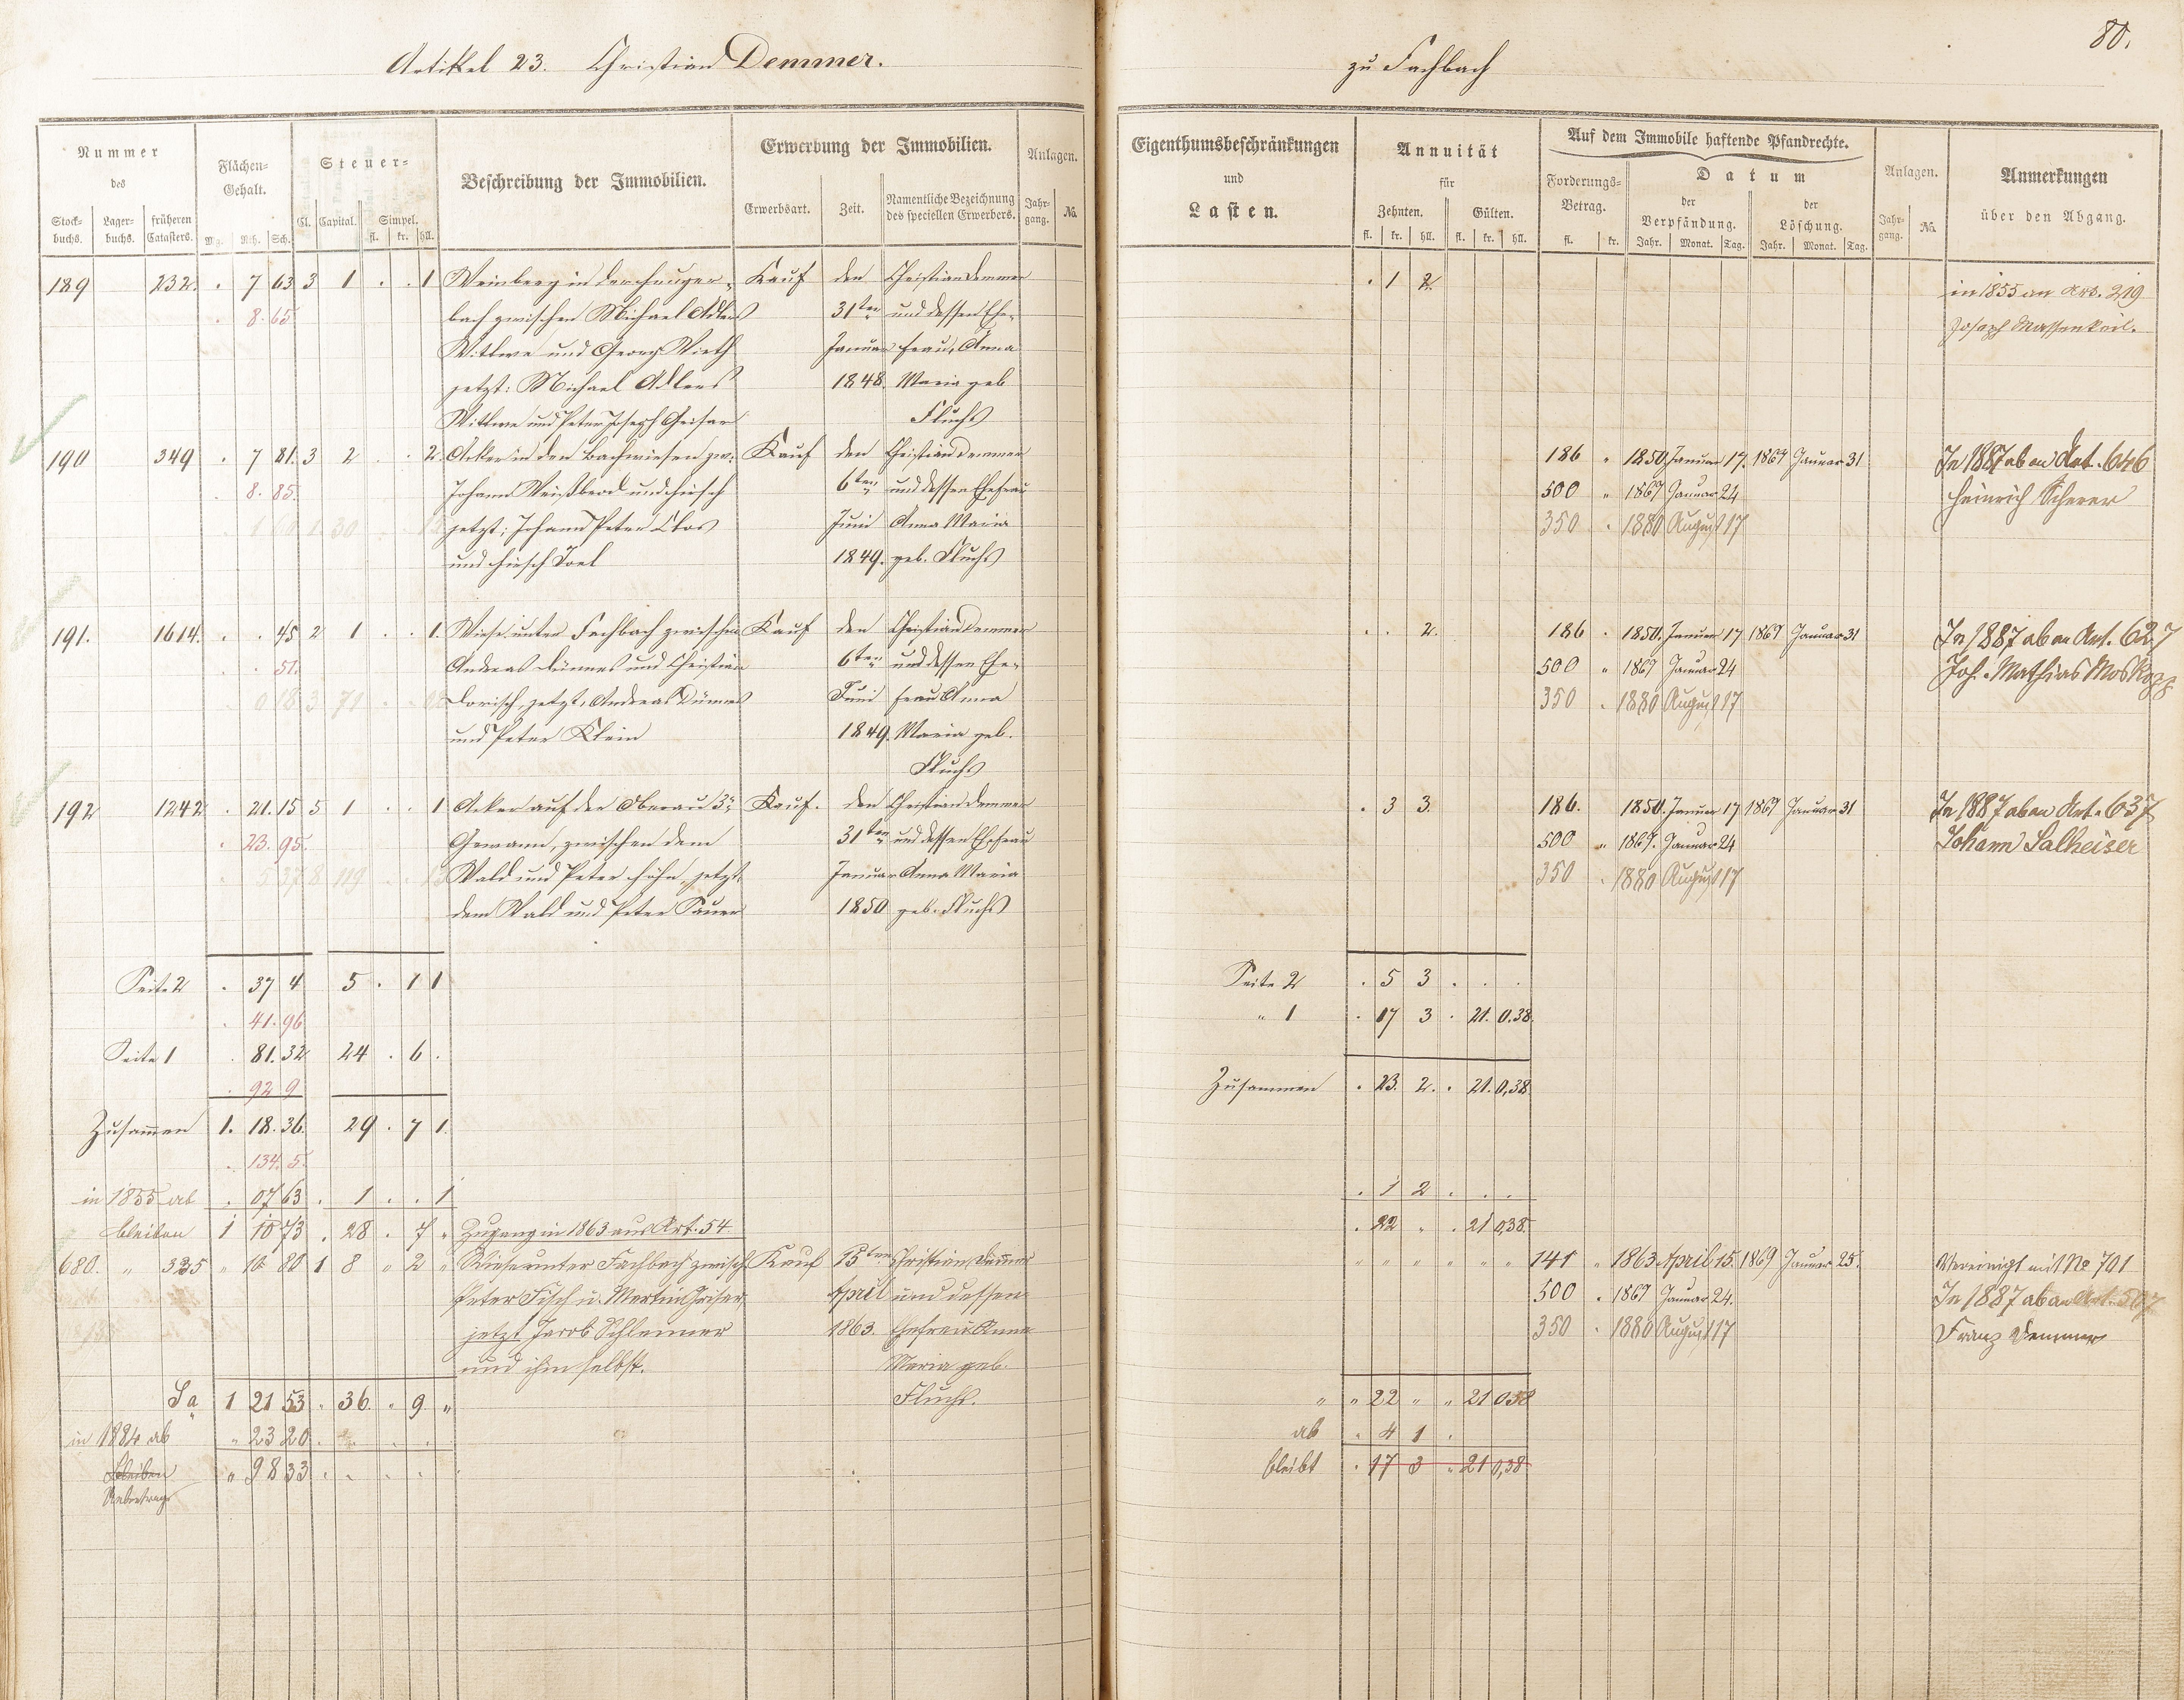 80.
Artikel 23. Christian Demmer.
zu Fachbach
Nummer
des
Stock-buchs.
Lager-buchs.
früheren Catasters.
Flächen-Gehalt.
Mg. Rth. Sch.
Steuer-
Cl. Capital. Simpel.
fl. kr. hll.
Beschreibung der Immobilien.
Erwerbung der Immobilien.
Erwerbsart. Zeit. Namentliche Bezeichnung des speciellen Erwerbers.
Anlagen.
Jahr-gang. No.
189 232. . 7 63 3 1 . . 1 Weinberg in der Kauf den Christian Demmer
8. 65 bach zwischen Michael Adlers 31ten und dessen Ehe-
Wittwe und Georg Vieth Januar frau, Anna
jetzt: Michael Adlers 1848. Maria geb
Wittwe und Peter Joseph Geisar Fluchs
190 349 . 7 81. 3 2 . . 2. Acker in den Bachwiesen zw: Kauf den Christian Demmer
8. 85. Johann Weißbrod und Hirsch 6ten und dessen Ehefrau
jetzt: Johann Peter Clos Juni Anna Maria
und Hirsch Joel 1849. geb. Fluchs
191. 1614. . . 45 2 1 . . 1. Wiese unter Fachbach zwischen Kauf den Christian Demmer
51. Andreas Dünnes und Christian 6ten und dessen Ehe-
0 18 3 71 jetzt, Andreas Dünnes Juni frau Anna
und Peter Klein 1849. Maria geb.
Fluchs
192 1242 . 21. 15 5 1 . . 1 Acker auf der Oberau 3te Kauf. den Christian Demmer
23. 95. Gewann, zwischen dem 31ten und dessen Ehefrau
Wald und Peter Höhn, jetzt, Januar Anna Maria
dem Wald und Peter Sauer 1850 geb. Fluchs
Seite 2 . 37 4 5 . 1 1
41. 96
Seite 1 . 81. 32 24 . 6 .
92 9
Zusammen 1. 18. 36. 29 . 7 1.
134. 5.
in 1855 ab . 07 63 . 1 . . 1
bleiben 1 10 73 . 28 . 7 " Zugang in 1863 aus Art. 54
680. " 325 " 10 80 1 8 " 2 " Wiese unter Fachbach zwisch Kauf 15ten Christian Demmer
Peter Fisch u. Martin Griser, April und dessen
jetzt Jacob Schlemmer 1863. Ehefrau Anna
und ihm selbst. Maria geb.
Sa 1 21 53 . 36. . 9. " Fluchs.
in 1884 ab " 23 20
bleiben " 98 33
Uebertrag
Eigenthumsbeschränkungen
und
Lasten.
Annuität
für
Zehnten. Gülten.
fl. kr. hll. fl. kr. hll.
Auf dem Immobile haftende Pfandrechte.
Forderungs-Betrag.
fl. kr.
Datum
der Verpfändung.
Jahr. Monat. Tag.
der Löschung.
Jahr. Monat. Tag.
Anlagen.
Jahr-gang. No.
Anmerkungen
über den Abgang.
. 1 2. in 1855 an Art. 219
Joseph Massenkeil.
186 " 1850 Januar 17. 1867 Januar 31 In 1887 ab an Art. 646
500 " 1867 Januar 24 Heinrich Scherer
350 . 1880 August 17
. . 2. 186 . 1850. Januar 17 1867 Januar 31 In 1887 ab an Art. 627
500 " 1867 Januar 24 Joh. Mathias Moskopp
350 . 1880 August 17
. 3 3. 186. 1850. Januar 17 1867 Januar 31 In 1887 ab an Art. 637
500 " 1867. Januar 24 Johann Salheiser
350 . 1880 August 17
Seite 2 . 5 3 . . .
" 1 . 17 3 . 21. 0.38.
Zusammen . 23. 2. . 21. 0,38
. 1 2 . . .
. 22 " . 21 0,38.
" " " " " " 141 " 1863 April 15. 1869 Januar 25. Vereinigt mit No 701
500 . 1867 Januar 24. In 1887 ab an Art. 507
350 . 1880 August 17 Franz Demmer
" " 22 " " 21 0 38
ab . 4 1 .
bleibt . 17 3 . 21 0,38